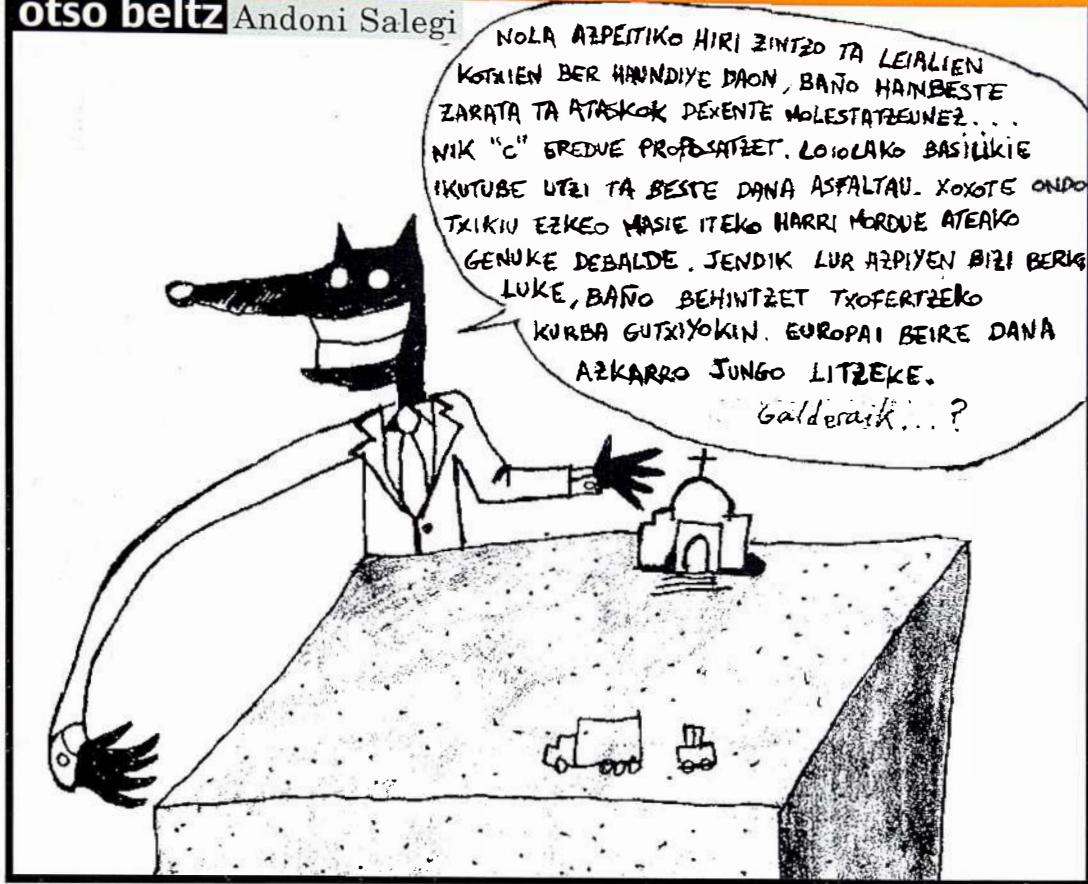 otso beltz Andoni Salegi
NOLA AZPEITIKO HIRI ZINTZO TA LEIALIEN
KOTXIEN BER HAUNDIYE DAON, BAÑO HAINBESTE
ZARATA TA ATASKOK DEXENTE MOLESTATZEUNEZ...
NIK "C" EREDUE PROPOSATZET. LOIOLAKO BASILIKIE
IKUTUBE UTZI TA BESTE DANA ASFALTAU. XOXOTE ONDO
TXIKIU EZKEO MASIE ITEKO HARRI MORDUE ATEAKO
GENUKE DEBALDE. JENDIK LUR AZPIYEN BIZI
LUKE, BAÑO BEHINTZET TXOFERTZEKO
KURBA GUTXIYOKIN. EUROPAI BEIRE DANA
AZKARRO JUNGO LITZEKE.
Galderaik...?